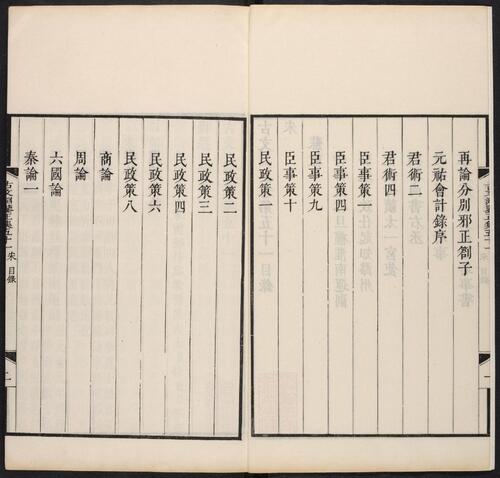 再論分別邪正劄子
元祐會計錄序
君術二
君術四
臣事策一
臣事策四
臣事策九
臣事策十
民政策一
民政策二
民政策三
民政策四
民政策六
民政策八
商論
周論
六國論
秦論一
宋 目錄